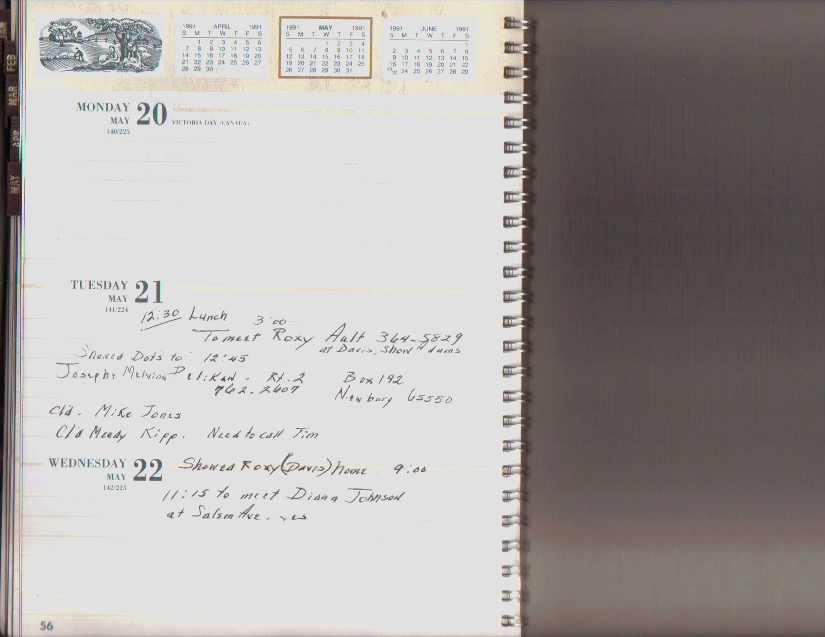 FEB
MAR
APR
MAY
1991 APRIL 1991
S M T W T F S
1 2 3 4 5 6
7 8 9 10 11 12 13
14 15 16 17 18 19 20
21 22 23 24 25 26 27
28 29 30
1991 MAY 1991
S M T W T F S
1 2 3 4
5 6 7 8 9 10 11
12 13 14 15 16 17 18
19 20 21 22 23 24 25
26 27 28 29 30 31
1991 JUNE 1991
S M T W T F S
1
2 3 4 5 6 7 8
9 10 11 12 13 14 15
16 17 18 19 20 21 22
23/30 24 25 26 27 28 29
MONDAY 20
MAY VICTORIA DAY (CANADA)
140/225
TUESDAY 21
MAY
141/224
12:30 Lunch 3:00
To meet Roxy Ault 364-5829
at Davis, Show
Showed Dots to 12:45
Joseph & Melvina Rt. 2 Box 192
762-2607 Newburg 65550
Cld. Mike Jones
Cld Mendy Kipp. Need to call Tim
WEDNESDAY 22
MAY
142/223
Showed Roxy (Davis) home 9:00
11:15 to meet Diana Johnson
at Salem Ave. yes
56